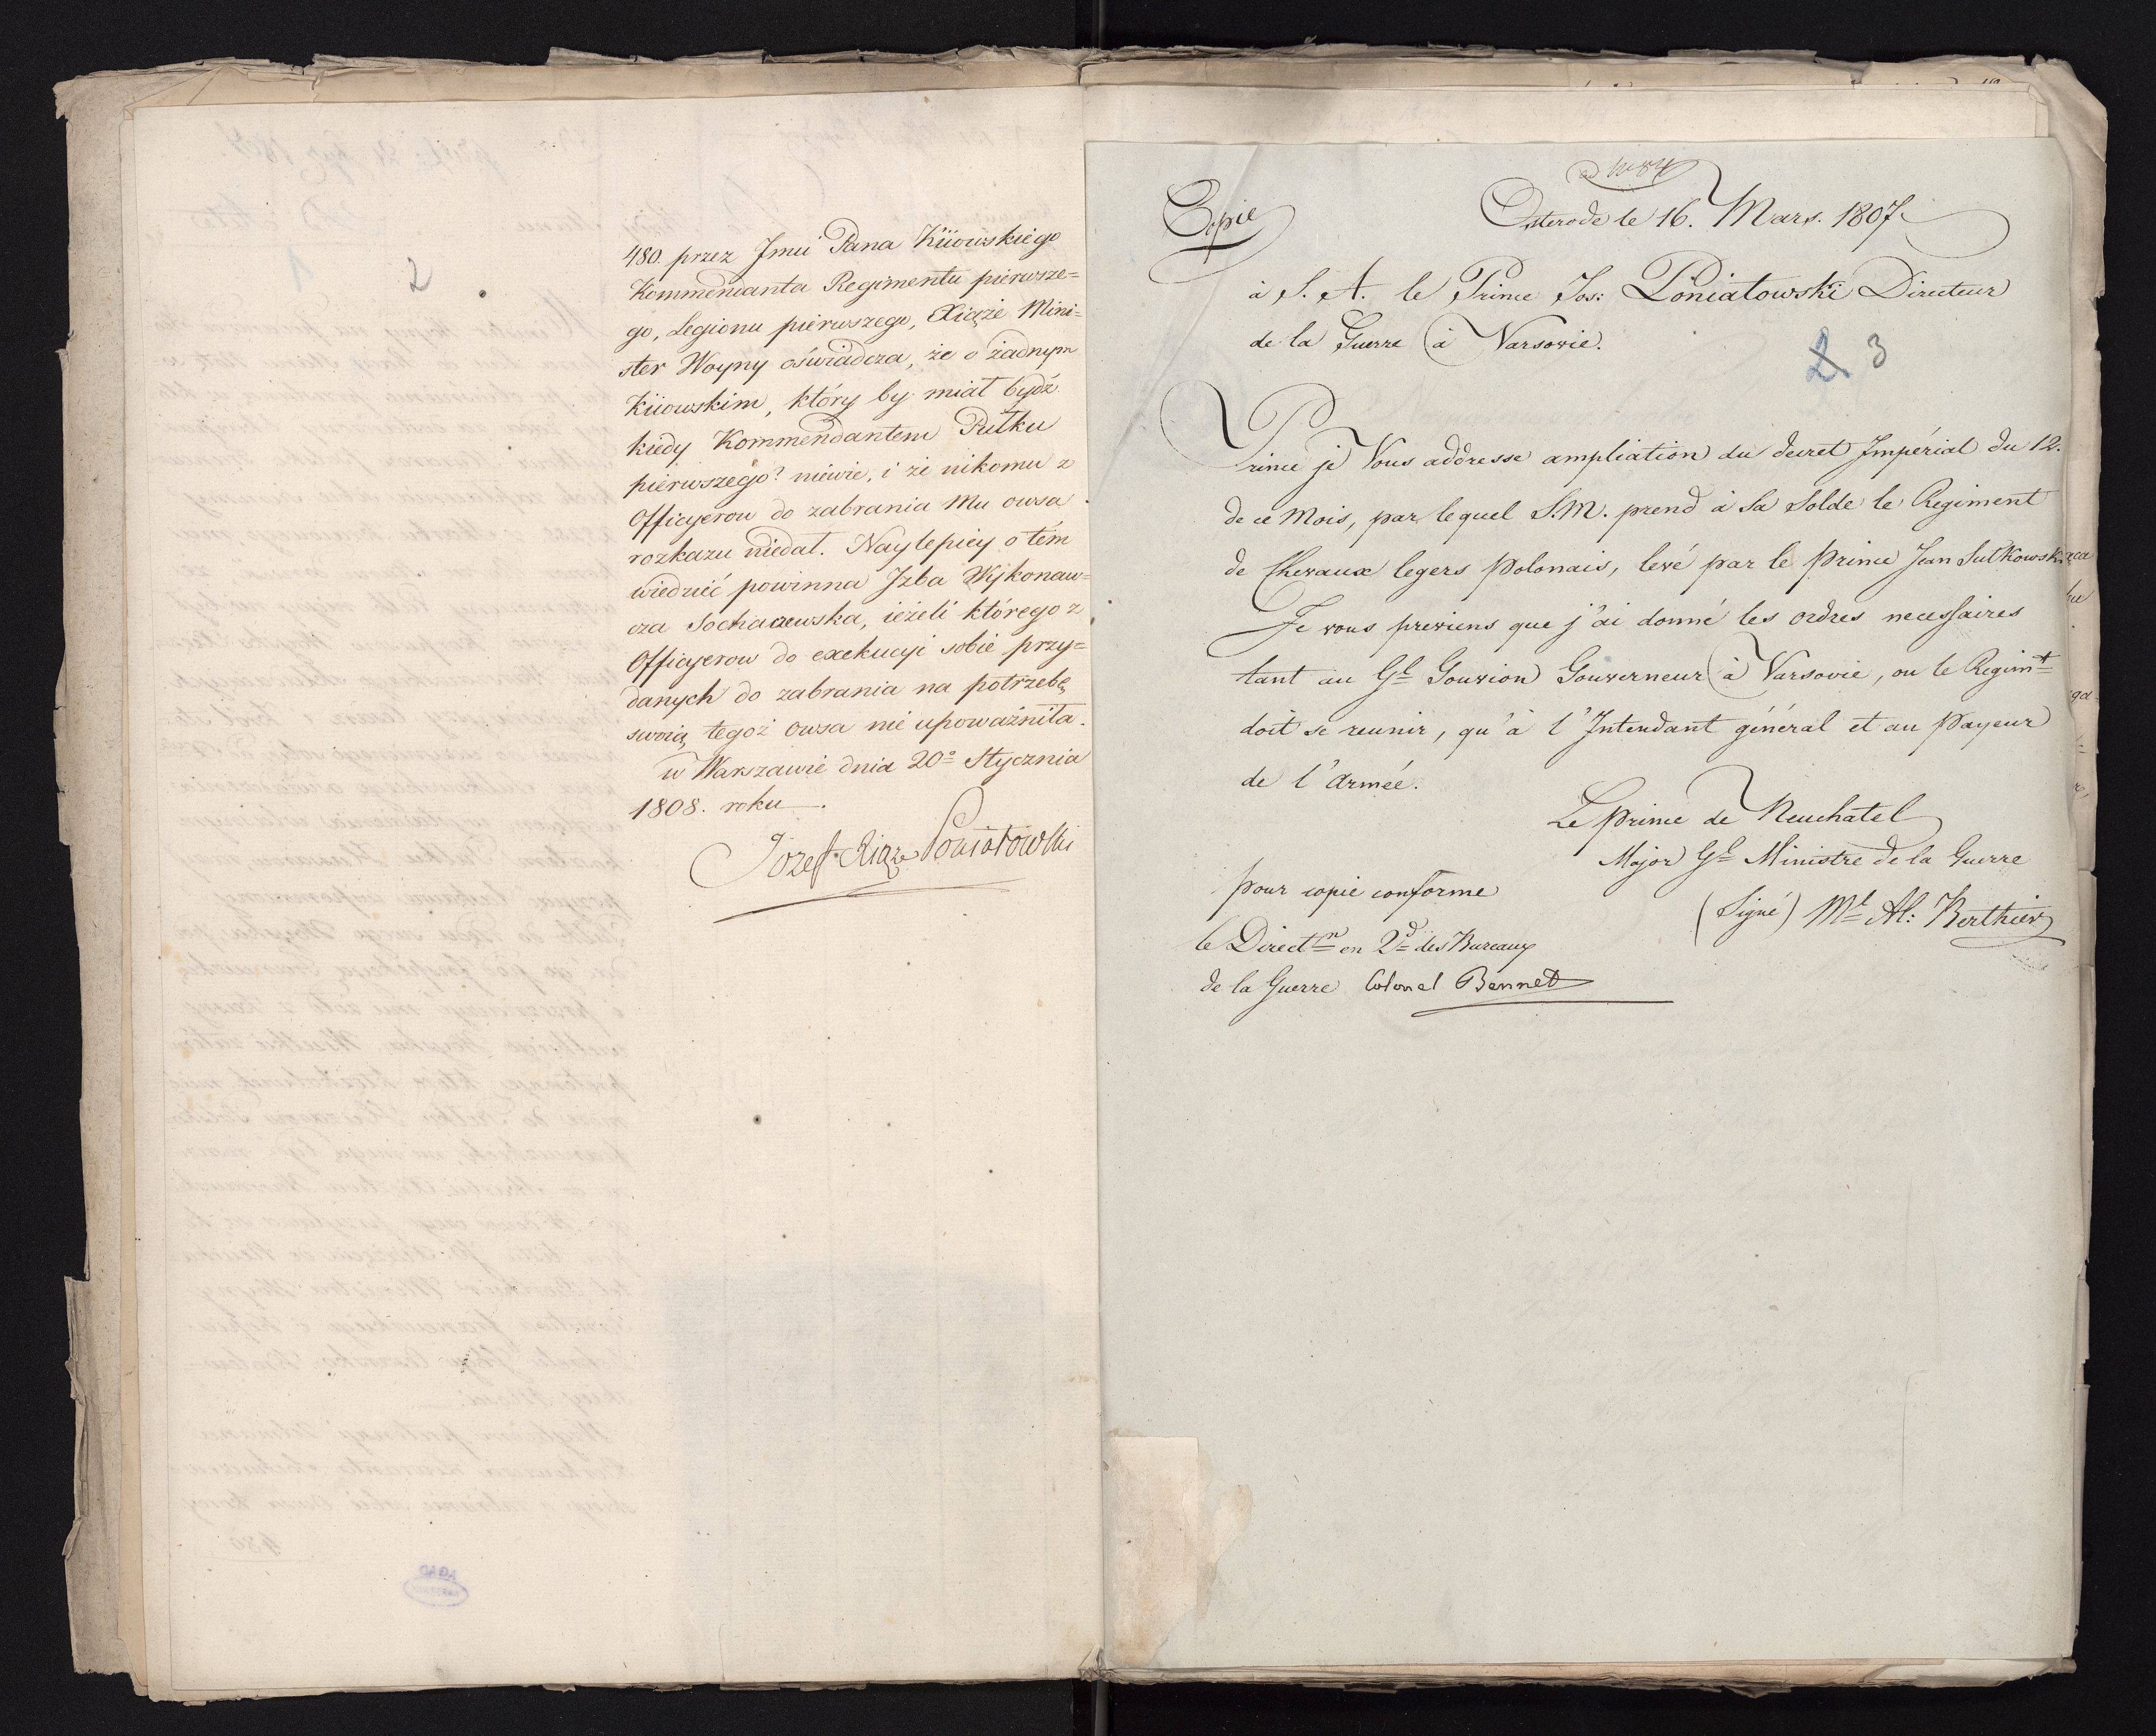 2
480. przez Jmci Pana Kiiowskiego
Kommendanta Regimentu pierwsze=
go, Legionu pierwszego, Xiąże Mini=
ster Woyny oświadcza, że o żadnym
Kiiowskim, który by miał bydź
kiedy Kommendantem Pułku
pierwszego? niewie, i że nikomu z
Officyerow do zabrania Mu owsa
rozkazu niedał. Naylepiey o tém
wiedzieć powinna Jzba Wykonaw=
cza Sochaczewska, ieżeli którego z
Officyerow do exekucyi sobie przy=
danych do zabrania na potrzebę
swoią tegoż owsa nie upoważniła.
w Warszawie dnia 20º Stycznia
1808. roku.
Jozef Xiąze Poniatowski
Copie
Osterode le 16. Mars. 1807
à S. A. le Prince Jos: Poniatowski Directeur
de la Guerre à Varsovie.
2. 3
Prince je Vous addresse ampliation du decret Impérial du 12.
de ce Mois, par lequel S.M. prend à Sa Solde le Regiment
de Chevaux legers Polonais, levé par le Prince Jean Sulkowski
Je vous previens que j'ai donné les ordres necessaires
tant au Gl Gouvion Gouverneur à Varsovie, ou le Regimt
doit se reunir, qu'à l'Intendant général et au Payeur
de l'Armée.
Le Prince de Neuchatel
Major Gl Ministre de la Guerre
(Signé) Ml Al: Berthier
pour copie conforme
le Directr en 2d des Bureaux
de la Guerre Colonel Bennet